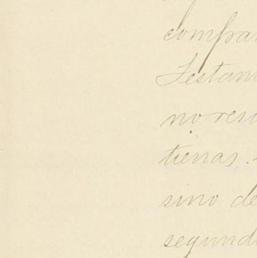 compra
Testam
no res
tierras.
sino de
segund